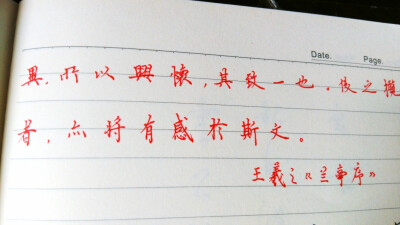 Date. Page.
異，所以興懷，其致一也。後之攬
者，亦將有感於斯文。
王羲之《兰亭序》